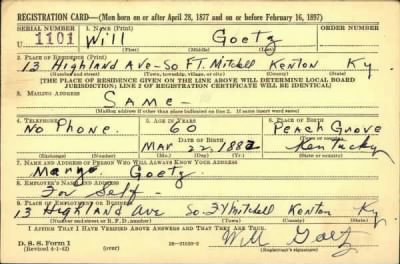 REGISTRATION CARD—(Men born on or after April 28, 1877 and on or before February 16, 1897)
SERIAL NUMBER 1. NAME (Print)
U 1101 Will Goetz
(First) (Middle) (Last)
2. PLACE OF RESIDENCE (Print)
13 Highland Ave-So Ft. Mitchell Kenton Ky.
(Number and street) (Town, township, village, or city) (County) (State)
[THE PLACE OF RESIDENCE GIVEN ON THE LINE ABOVE WILL DETERMINE LOCAL BOARD
JURISDICTION; LINE 2 OF REGISTRATION CERTIFICATE WILL BE IDENTICAL]
3. MAILING ADDRESS
Same-
[Mailing address if other than place indicated on line 2. If same insert word same]
4. TELEPHONE 5. AGE IN YEARS 6. PLACE OF BIRTH
No Phone. 60 Peach Grove
DATE OF BIRTH (Town or county)
Mar 22, 1882 Kentucky
(Exchange) (Number) (Mo.) (Day) (Yr.) (State or country)
7. NAME AND ADDRESS OF PERSON WHO WILL ALWAYS KNOW YOUR ADDRESS
Goetz
8. EMPLOYER'S NAME AND ADDRESS
For Self-
9. PLACE OF EMPLOYMENT OR BUSINESS
13 Highland Ave So. Ft Mitchell Kenton Ky
(Number and street or R. F. D. number) (Town) (County) (State)
I AFFIRM THAT I HAVE VERIFIED ABOVE ANSWERS AND THAT THEY ARE TRUE.
D. S. S. Form 1
(Revised 4-1-42) (over) Will Goetz
(Registrant's signature)